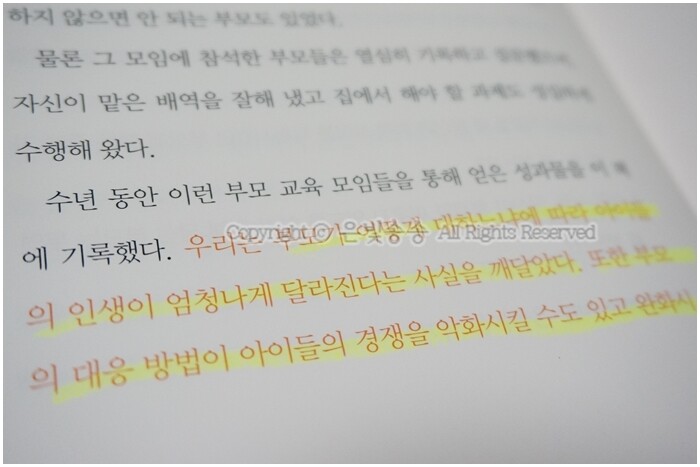 하지 않으면 안 되는 부모도 있었다.
물론 그 모임에 참석한 부모들은 열심히 기록하고
자신이 맡은 배역을 잘해 냈고 집에서 해야 할 과제도 성실하게
수행해 왔다.
수년 동안 이런 부모 교육 모임들을 통해 얻은 성과물을 이 책
에 기록했다. 우리는 부모가 대하느냐에 따라 아이들
Copyright All Rights Reserved
의 인생이 엄청나게 달라진다는 사실을 깨달았다. 또한 부모
의 대응 방법이 아이들의 경쟁을 악화시킬 수도 있고 완화시